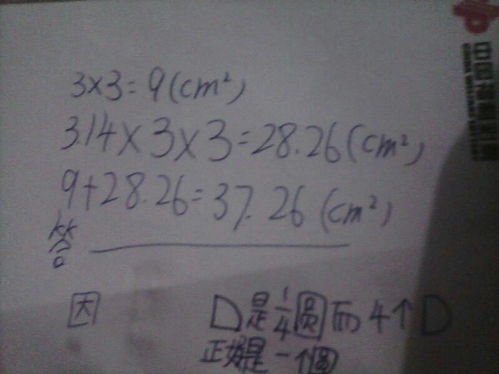 3×3=9(cm²)
3.14×3×3=28.26(cm²)
9+28.26=37.26(cm²)
答
因 D是1/4圆而4个D
正好是一个圆
中国福利彩票